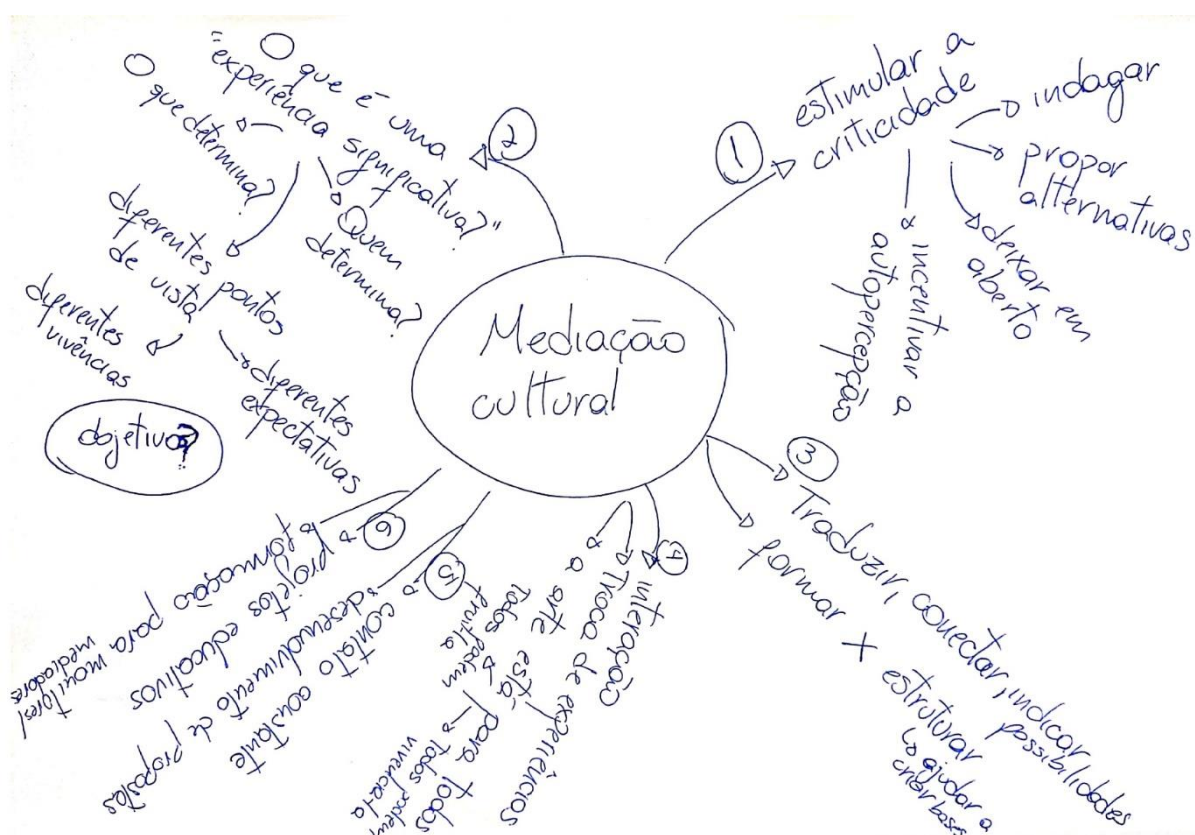 Mediação
cultural
1
estimular a
criticidade
indagar
propor
alternativas
deixar em
aberto
incentivar a
autopercepção
2
O que é uma
"experiência significativa?"
O que determina?
Quem
determina?
diferentes pontos
de vista
diferentes
vivências
diferentes
expectativas
objetivo?
3
Traduzir, conectar, indicar
possibilidades
formar + estruturar
ajudar a
criar bases
4
interação
Troca de experiências
a arte está para todos
Todos podem
fruí-la
Todos podem
vivenciá-la
5
contato constante
desenvolvimento de propostas
6
projetos educativos
formação para monitores/
mediadores